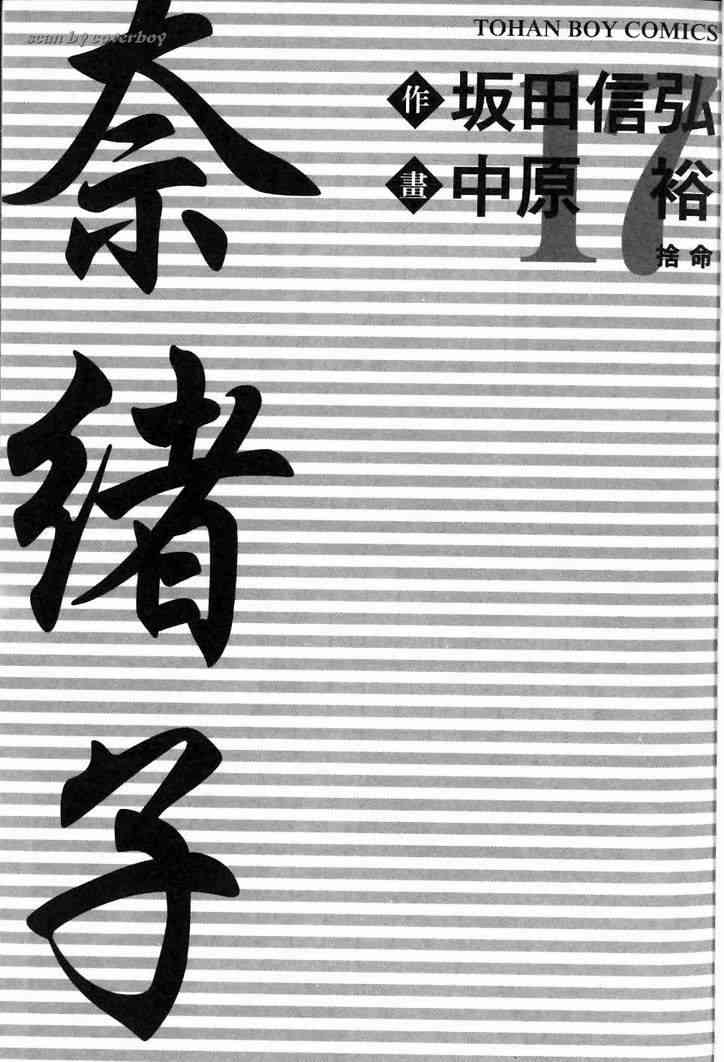 scan by coverboy
TOHAN BOY COMICS
作 坂田信弘
畫 中原 裕
17
捨命
奈緒子